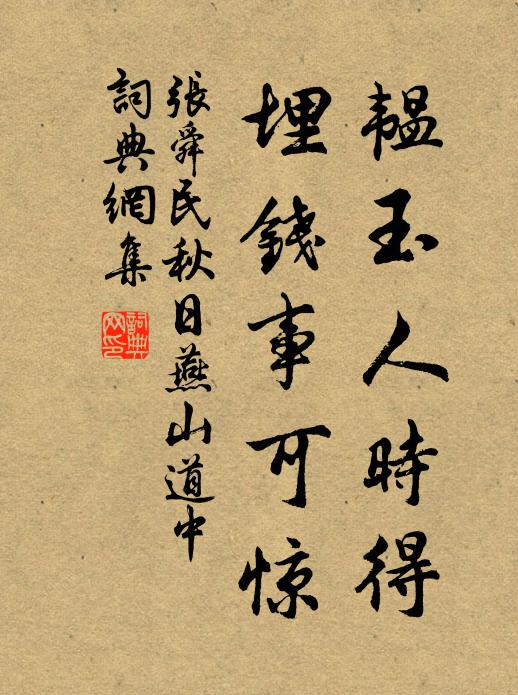 韫玉人時得
埋錢事可惊
張舜民秋日燕山道中
詞典網集
詞典网印